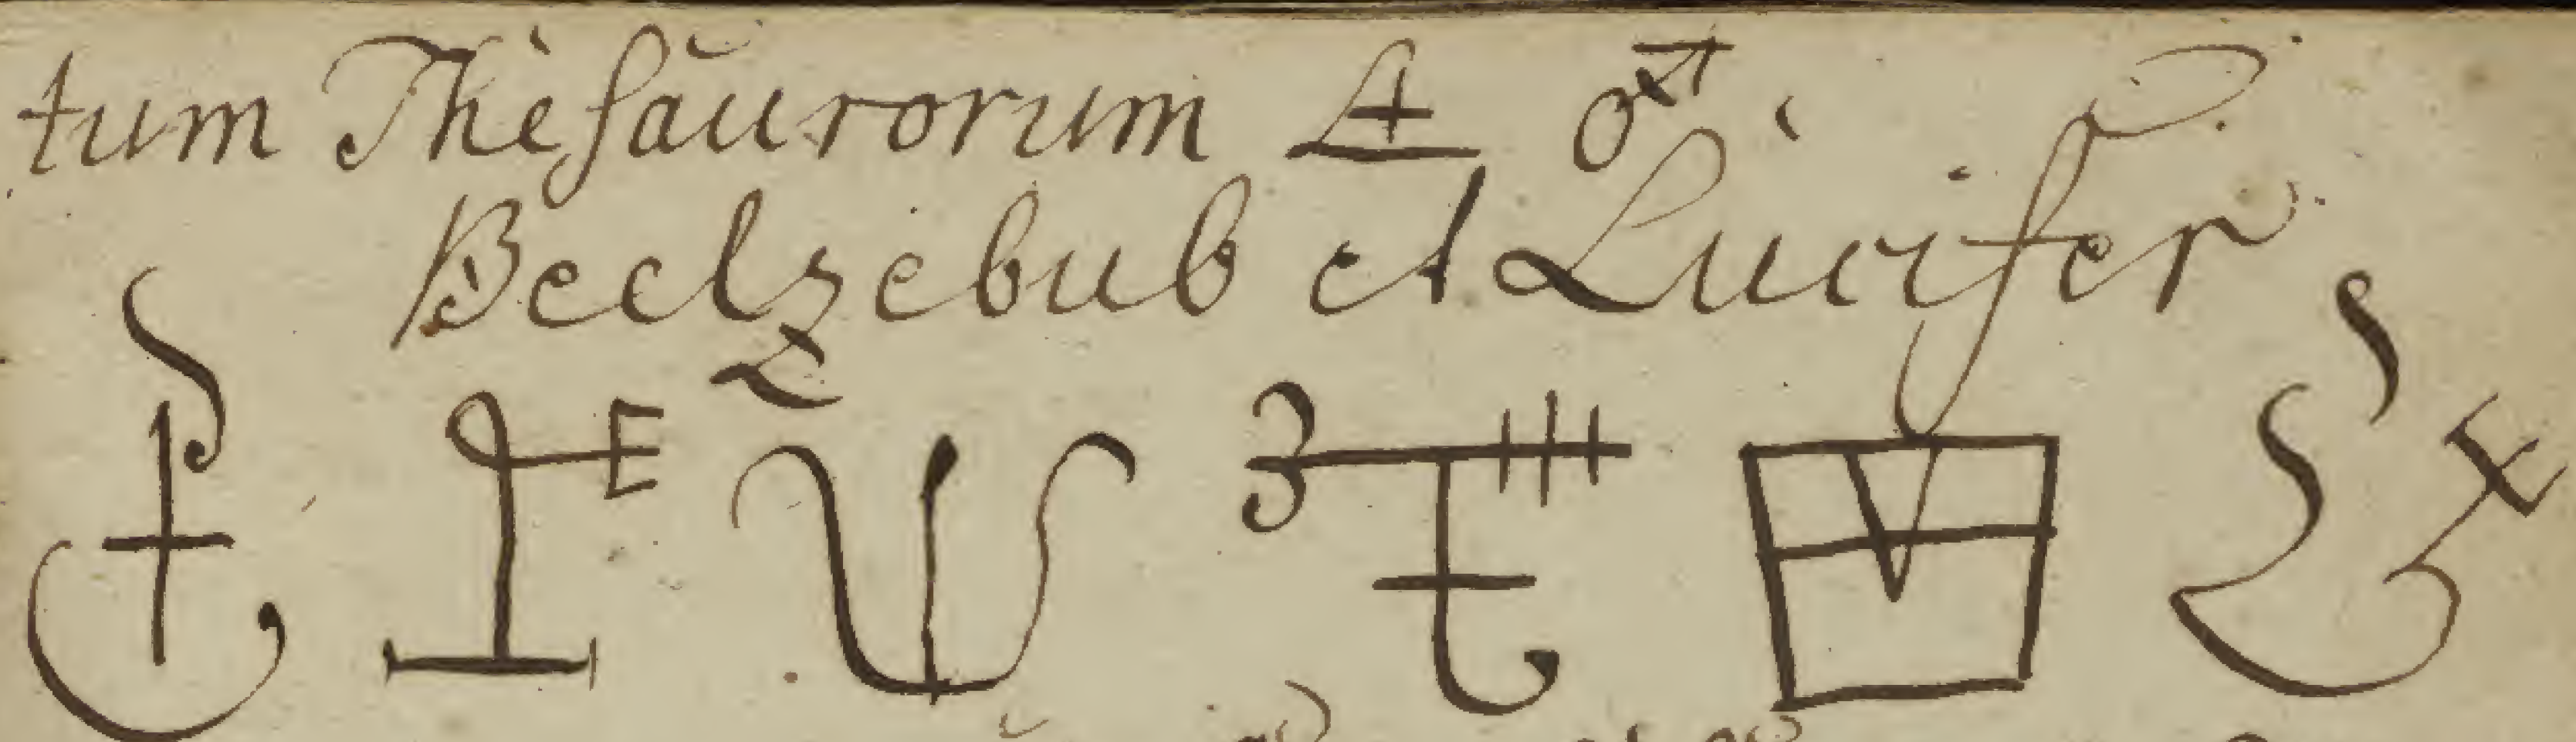 tum Thesaurorum ♃ ♂
Beelzebub et Lucifer